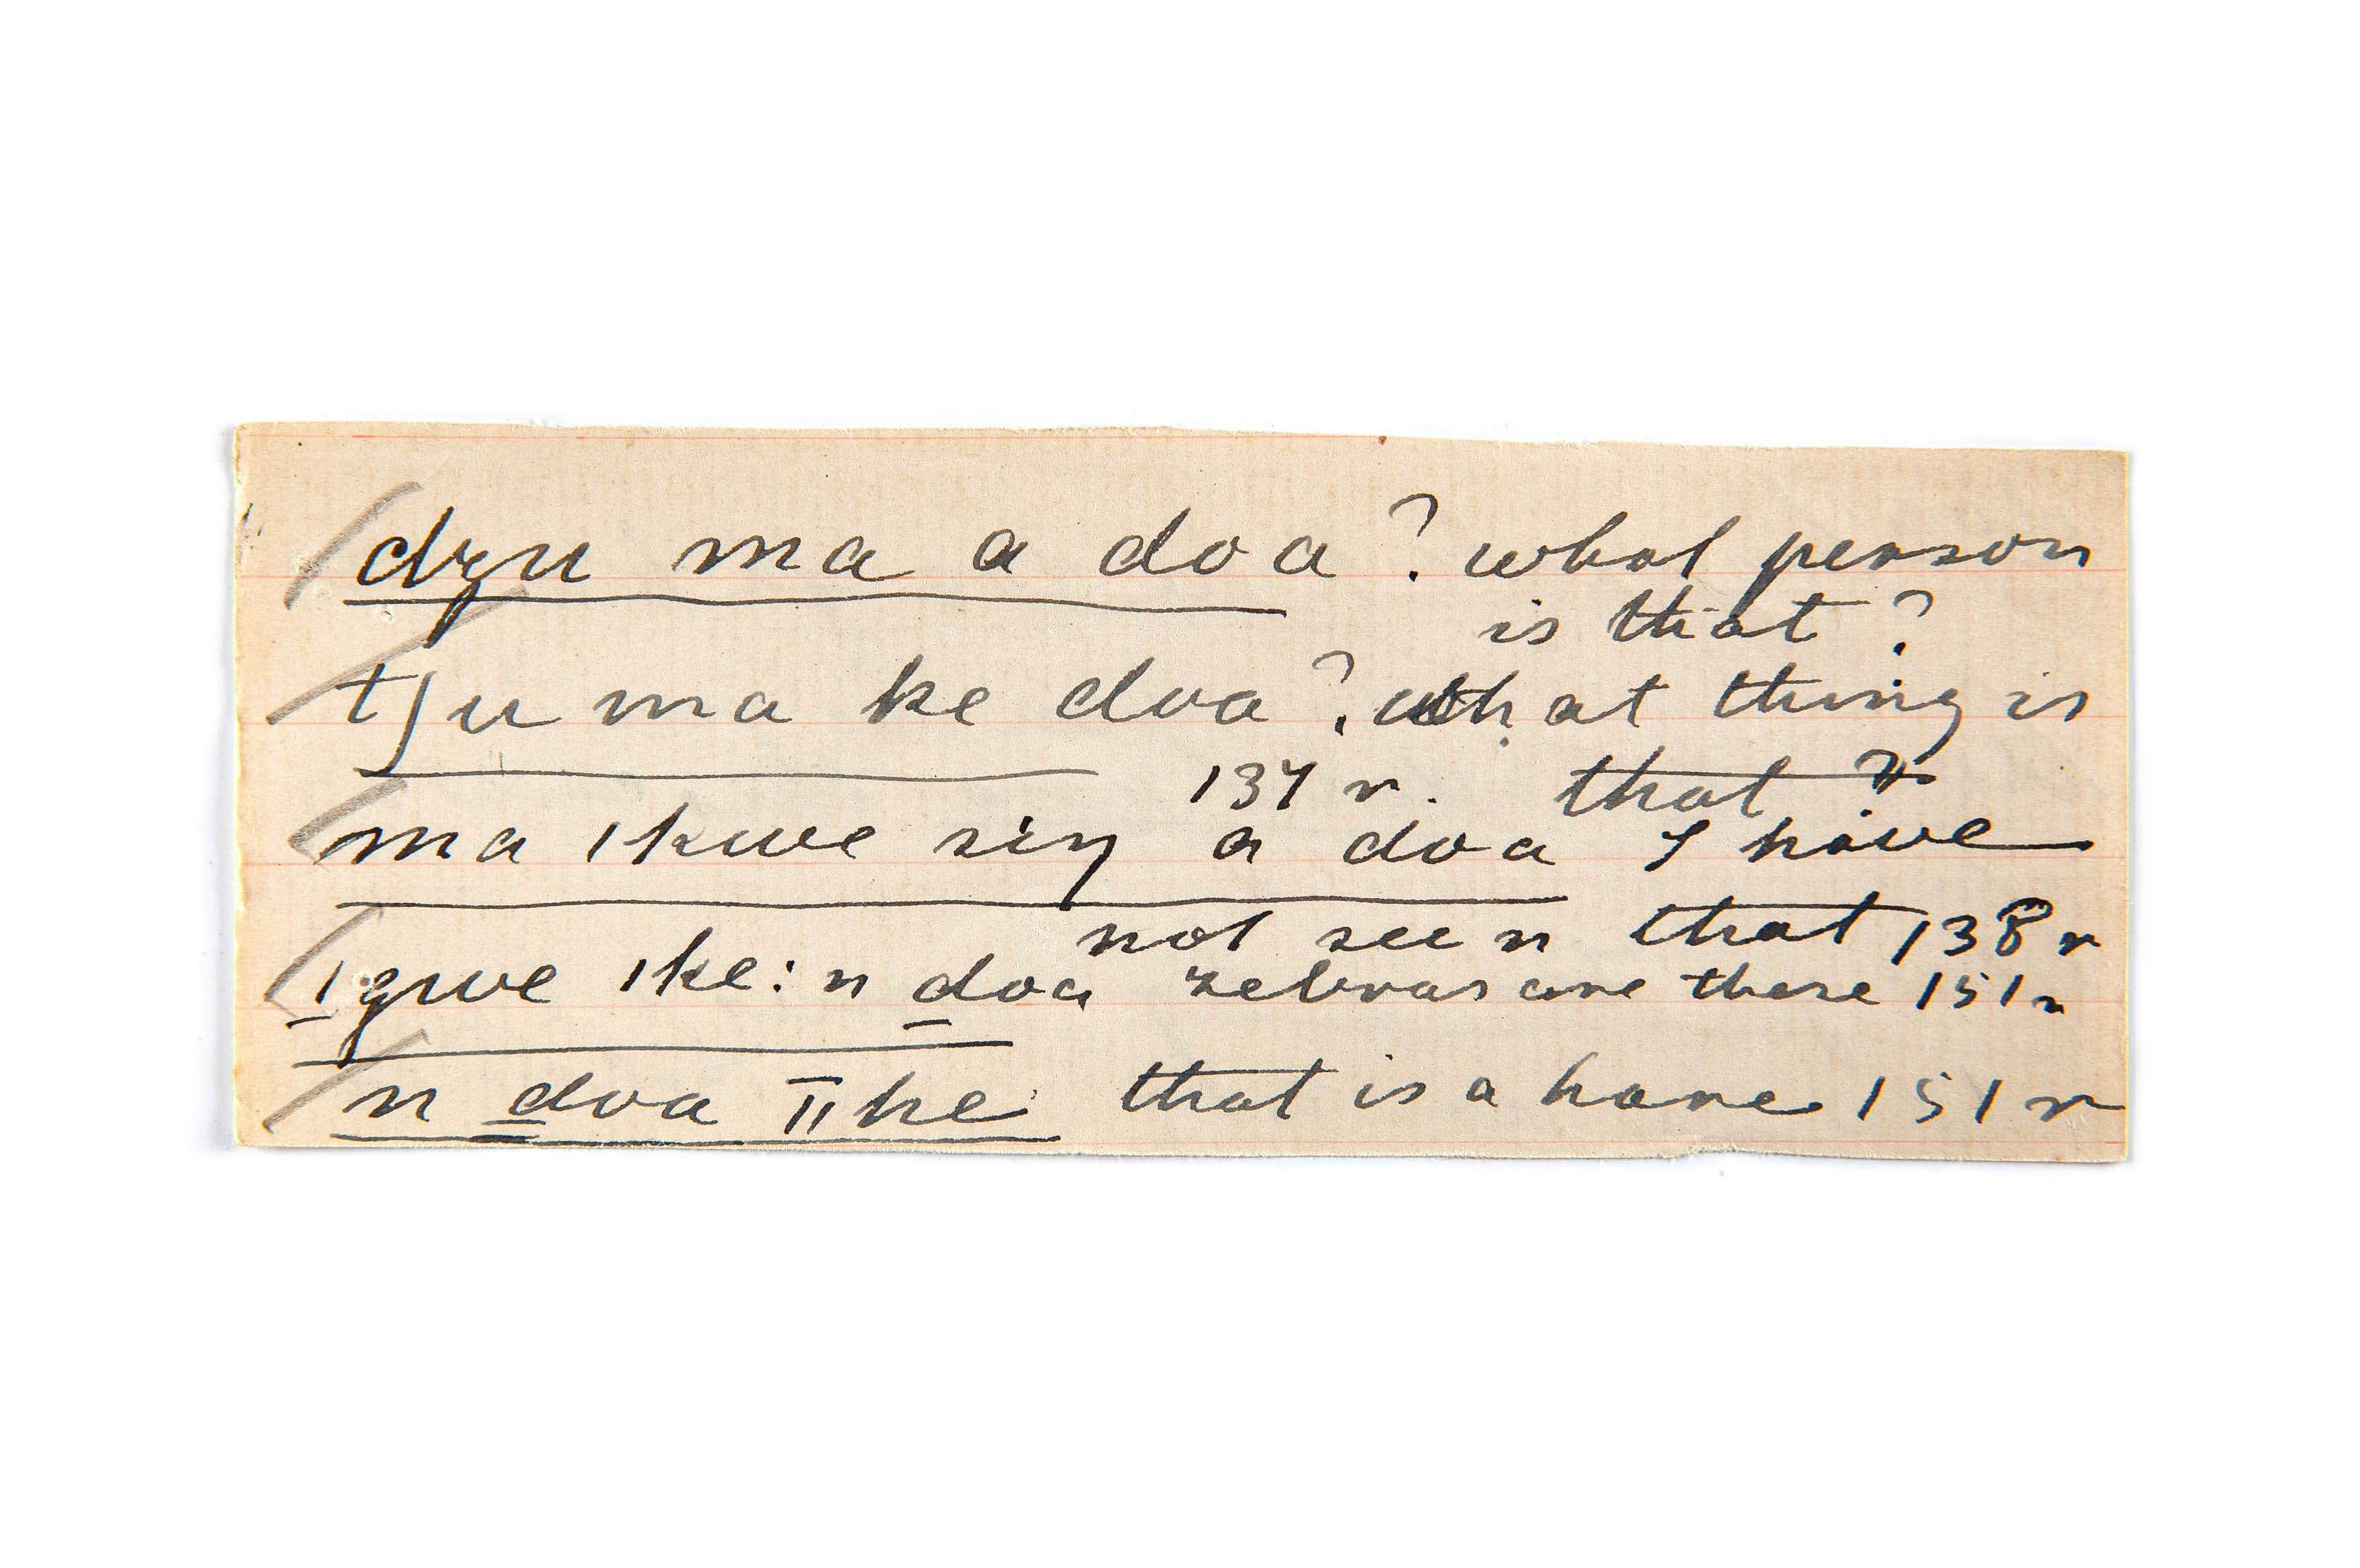 dʒu ma a doa? what person
is that?
tʃu ma ke doa? what thing is
137 r. that?
ma ǀkwe siŋ a doa I have
not seen that 138 r
ǀgwe ǀke: n doa zebras are there 151 r
n doa ǁhe that is a hare 151 r